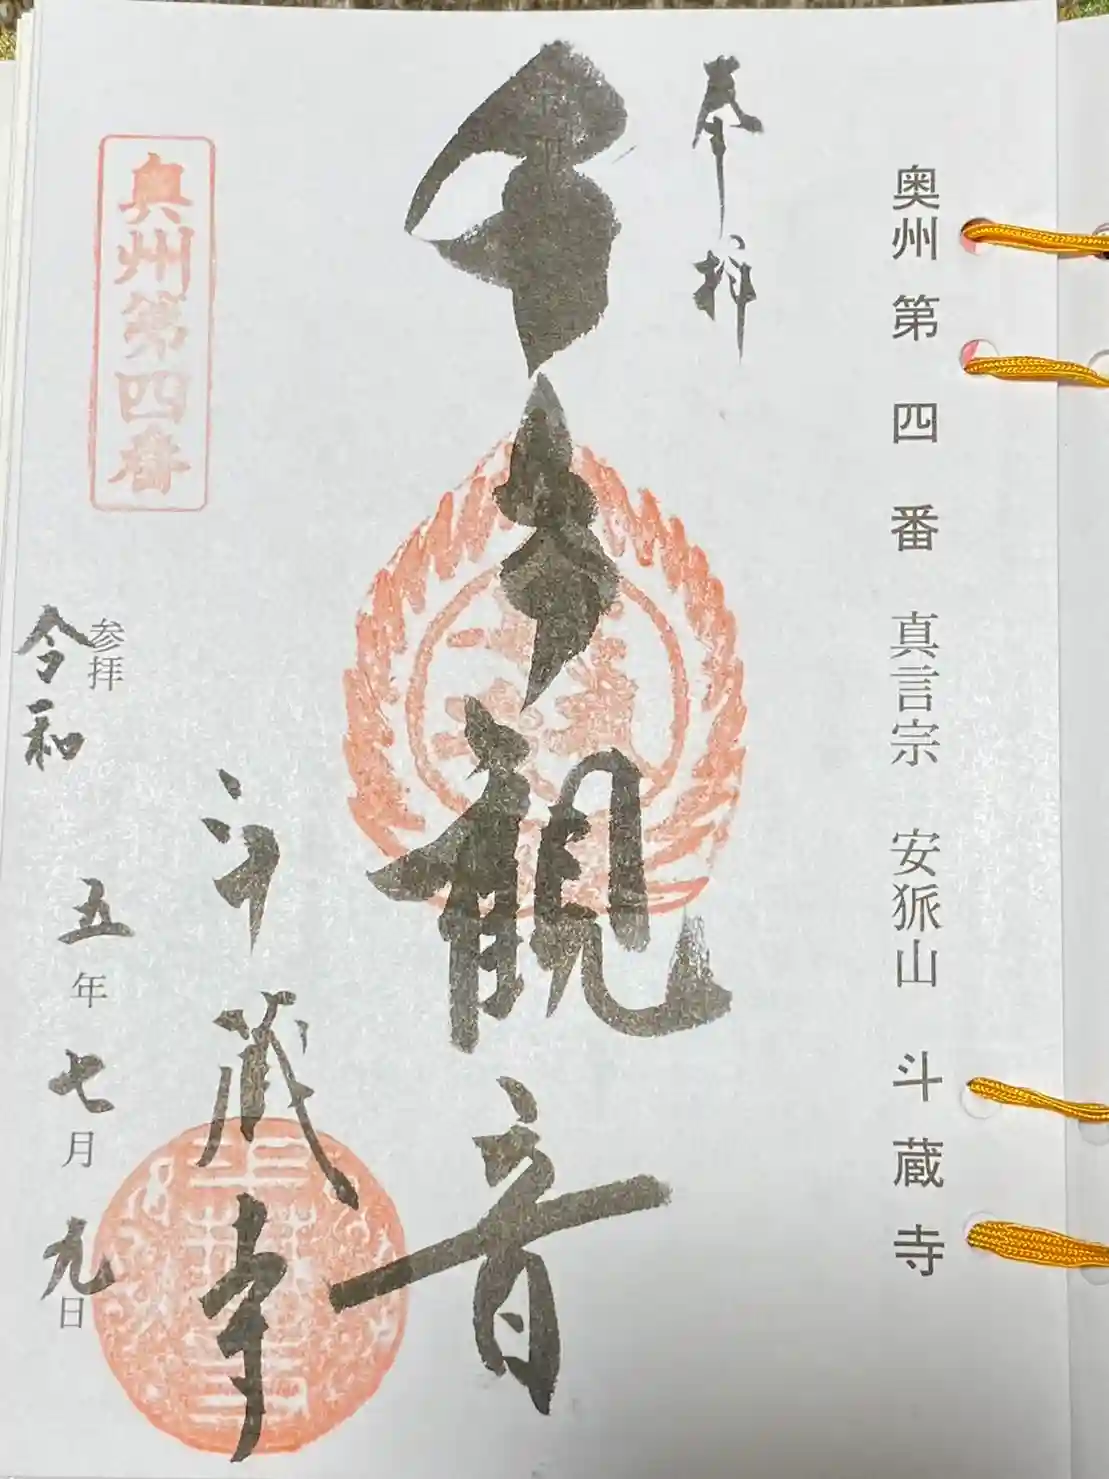 奥州第四番 真言宗 安狐山 斗蔵寺
奉拝
千手観音
斗蔵寺
奥州第四番
参拝
令和 五年 七月 九日